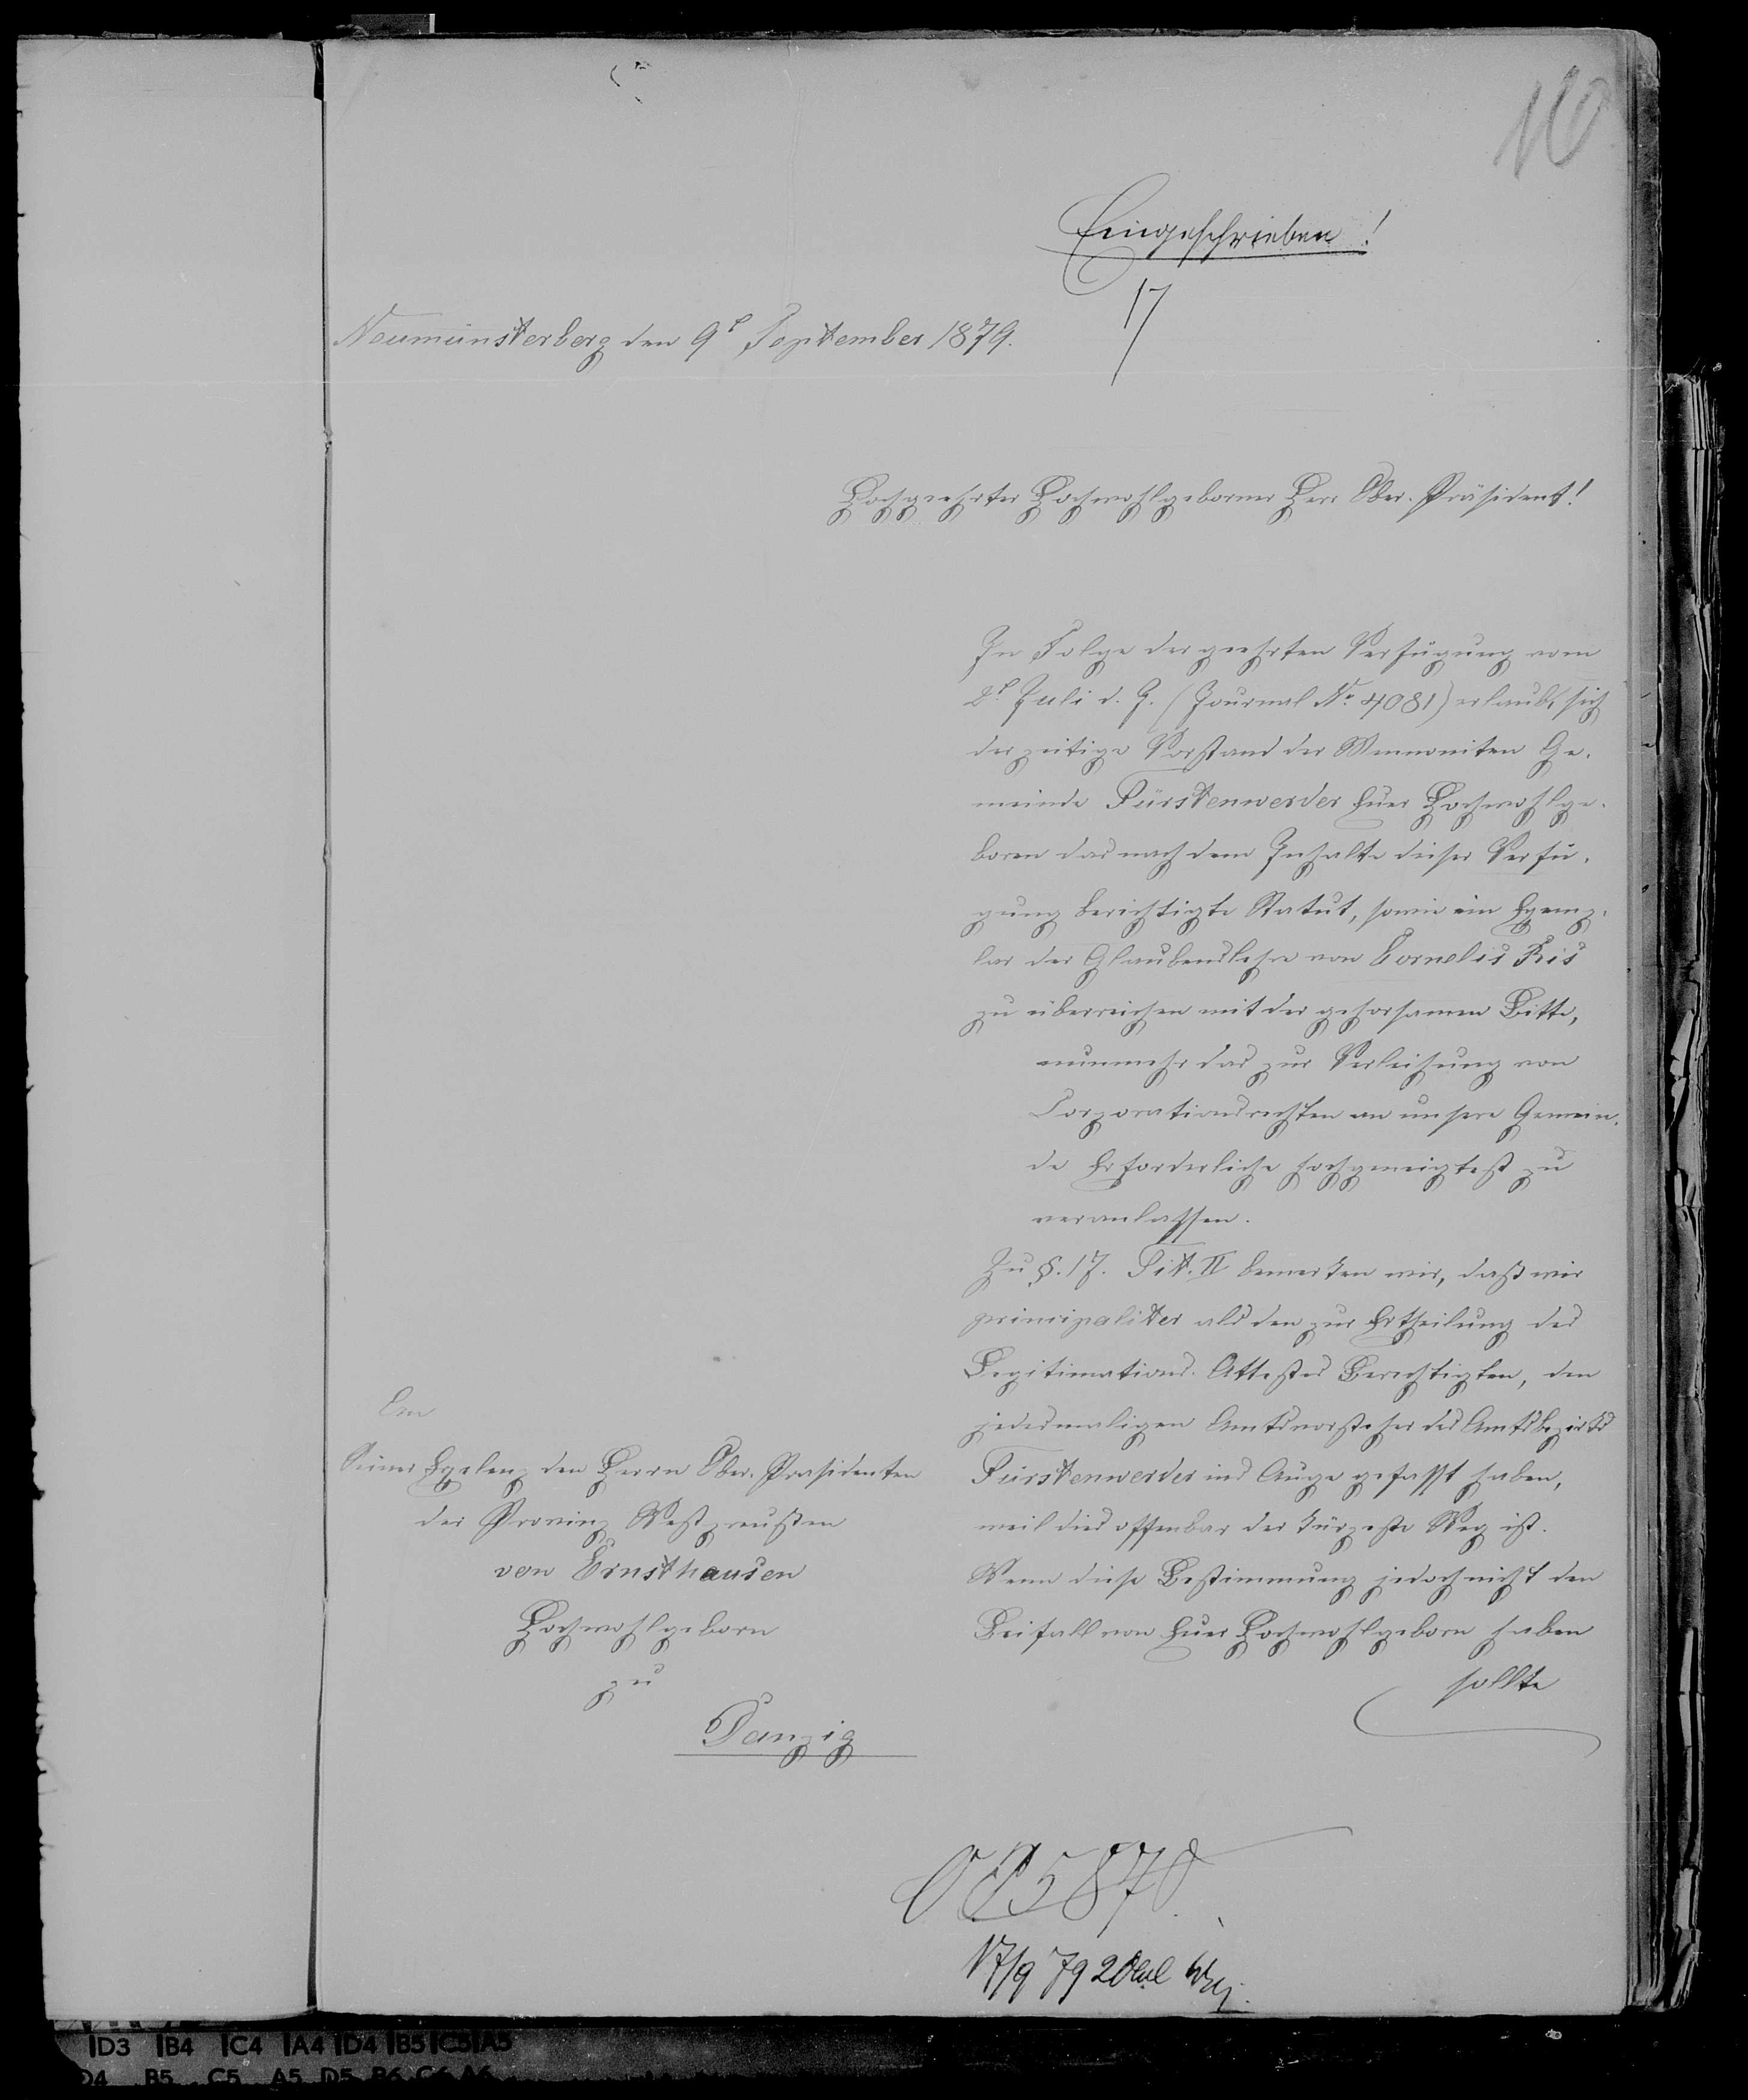 16
Eingeschrieben!
17
Neumünsterberg den 9t September 1879.
Hochgeehrter Hochwohlgeborner Herr Ober-Präsident!
In Folge der geehrten Verfügung vom
2t Juli d. J. (Journal No 4081) erlaubt sich
der zeitige Vorstand der Mennoniten Ge-
meinde Fürstenwerder Euer Hochwohlge-
boren das nach dem Inhalte dieser Verfü-
gung berichtigte Statut, sowie ein Exemp-
lar der Glaubenslehre von Cornelis Ris
zu überreichen mit der gehorsamen Bitte,
nunmehr das zur Verleihung von
Corporationsrechten an unsere Gemein-
de Erforderliche hochgeneigtest zu
veranlassen.
Zu §. 17. Tit. II bemerken wir, daß wir
principaliter als den zur Ertheilung des
Legitimations-Attestes Berechtigten, den
jedesmaligen Amtsvorsteher des Amtsbezirks
Fürstenwerder ins Auge gefasst haben,
weil dies offenbar der kürzeste Weg ist.
Wenn diese Bestimmung jedoch nicht den
Beifall von Euer Hochwohlgeborn haben
sollte
An
Seiner Exzelenz den Herrn Ober-Präsidenten
der Provinz Westpreußen
von Ernsthausen
Hochwohlgeborn
zu
Danzig
O P 5870.
17/9 79
D3 B4 C4 A4 D4 B5 C5 A5
D4 B5 C5 A5 D5 B6 C6 A6